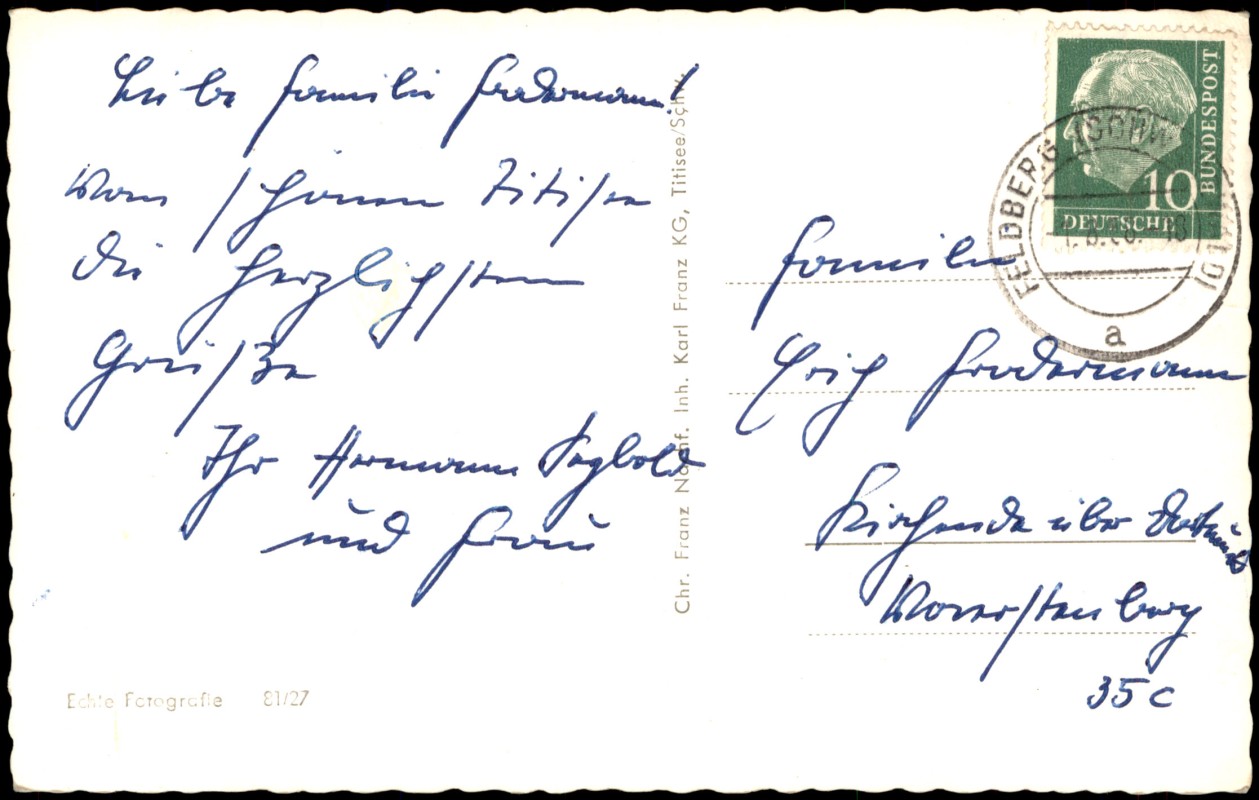 Liebe Familie Fredermann!
Vom schönen Titisee
die herzlichsten
Grüße
Ihr Hermann Segbold
und Frau
Echte Fotografie 81/27
Chr. Franz Nachf. Inh. Karl Franz KG, Titisee/Schw.
BUNDESPOST
10
DEUTSCHE
FELDBERG (SCHW
a
Familie
Erich Fredermann
Kirchende über Dortmund
35 c